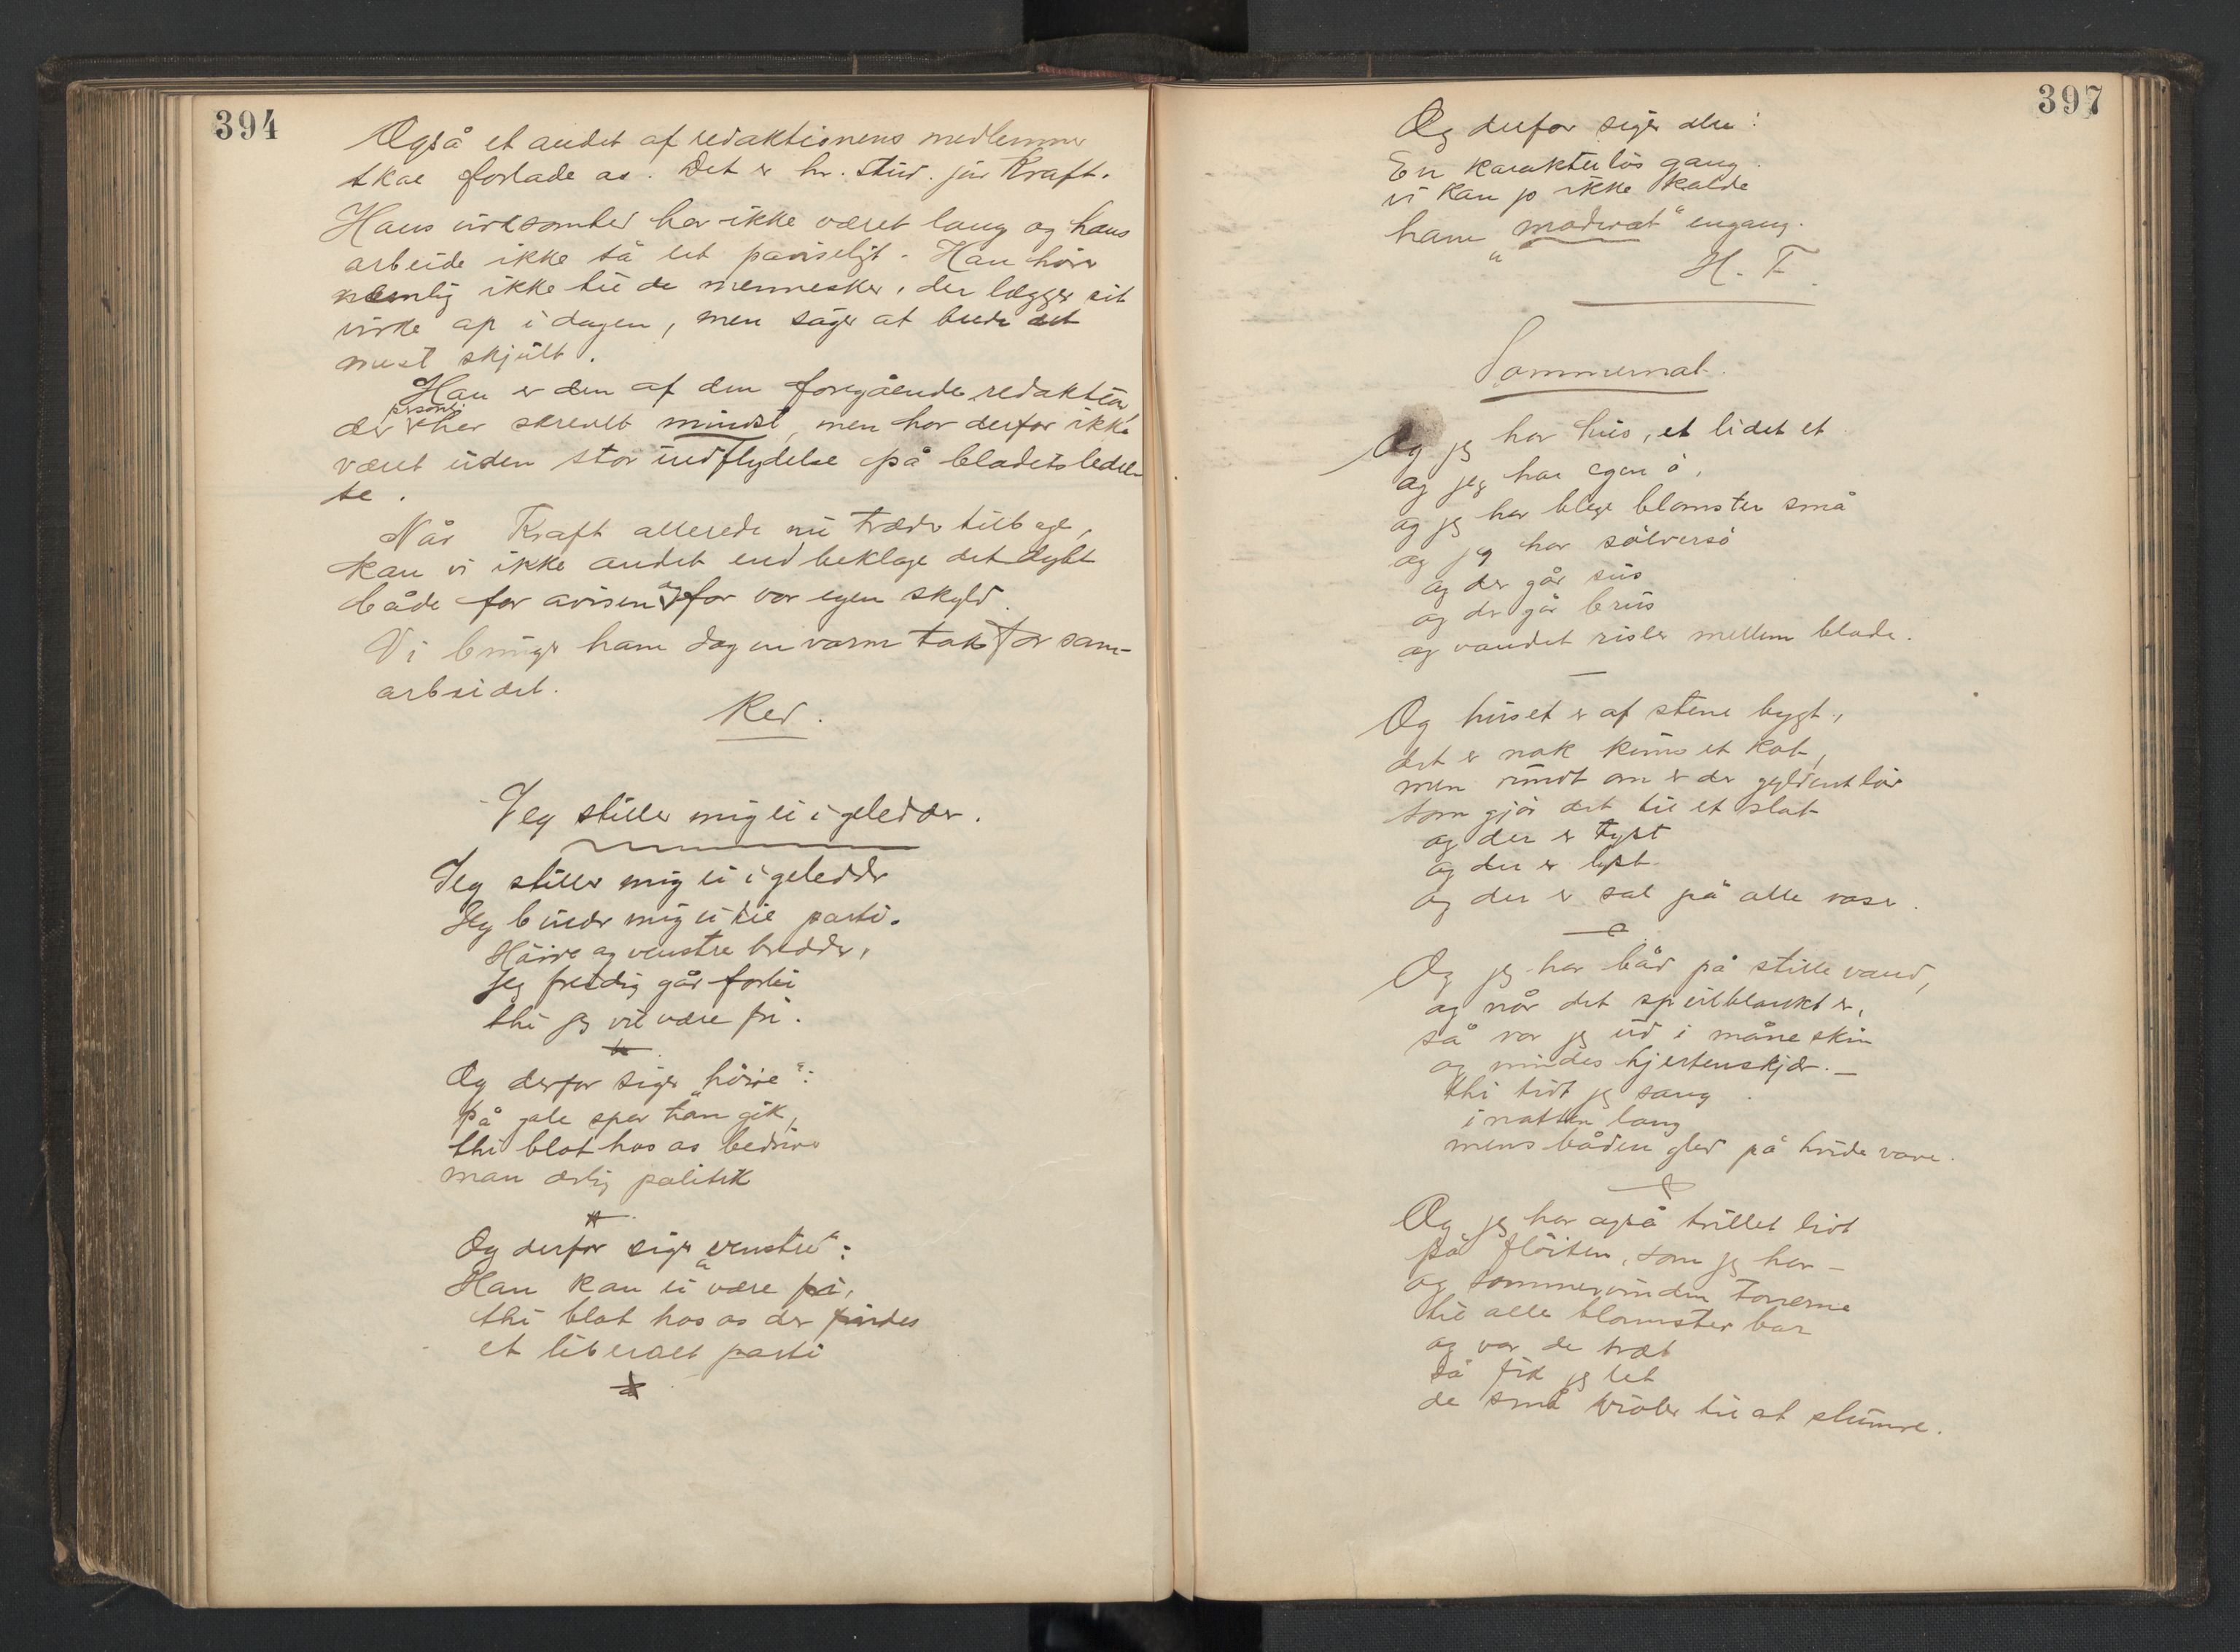 394
Også et andet af redaktionens medlemmer
skal forlade os. Det er hr. stud. jur Kraft.
Hans virksomhed har ikke været lang og hans
arbeide ikke så let påviseligt. Han hörer
nemlig ikke til de mennesker, der lægger sit
virke op i dagen, men söger at holde det
mest skjult.
Han er den af den foregående redaktion,
der personl. har skrevet mindst, men har derfor ikke
været uden stor indflydelse på bladets ledel-
se.
Når Kraft allerede nu træder tilbage,
kan vi ikke andet end beklage det dybt
både for avisen og for vor egen skyld.
Vi bringer ham dog en varm tak for sam-
arbeidet.
Red.
Jeg stiller mig ei i geledder.
Jeg stiller mig ei i geledder
Jeg binder mig ei til parti.
Höire og venstre bredder,
jeg freidig går forbi
thi jeg vil være fri.
Og derfor siger „höire“:
på gale spor han gik,
thi blot hos os bedrives
man ærlig politik
Og derfor siger „venstre“:
Han kan ei være fri,
thi blot hos os der findes
et liberalt parti
397
Og derfor siger alle:
En karakterlös gang.
vi kan jo ikke kalde
ham „moderat“ engang.
H. F.
Sommernat.
Og jeg har hus, et lidet et
og jeg har egen ö,
og jeg har blege blomster små
og jeg har sölversö
og der går sus
og der går brus
og vandet risler mellem blade.
Og huset er af stene bygt,
det er nok kuns et kot,
men rundt om er der gyldent löv
som gjör det til et slot
og der er tyst
og der er lyst
og der er sol på alle vase.
Og jeg har båd på stille vand,
og når det speilblankt er,
så ror jeg ud i måneskin
og mindes hjertenskjær. —
thi tidt jeg sang
i natten lang
mens båden gled på hvide vove.
Og jeg har også trillet lidt
på flöiten, som jeg har —
og sommervinden tonerne
til alle blomster bar
og var de træt
så fik jeg let
de små violer til at slumre.